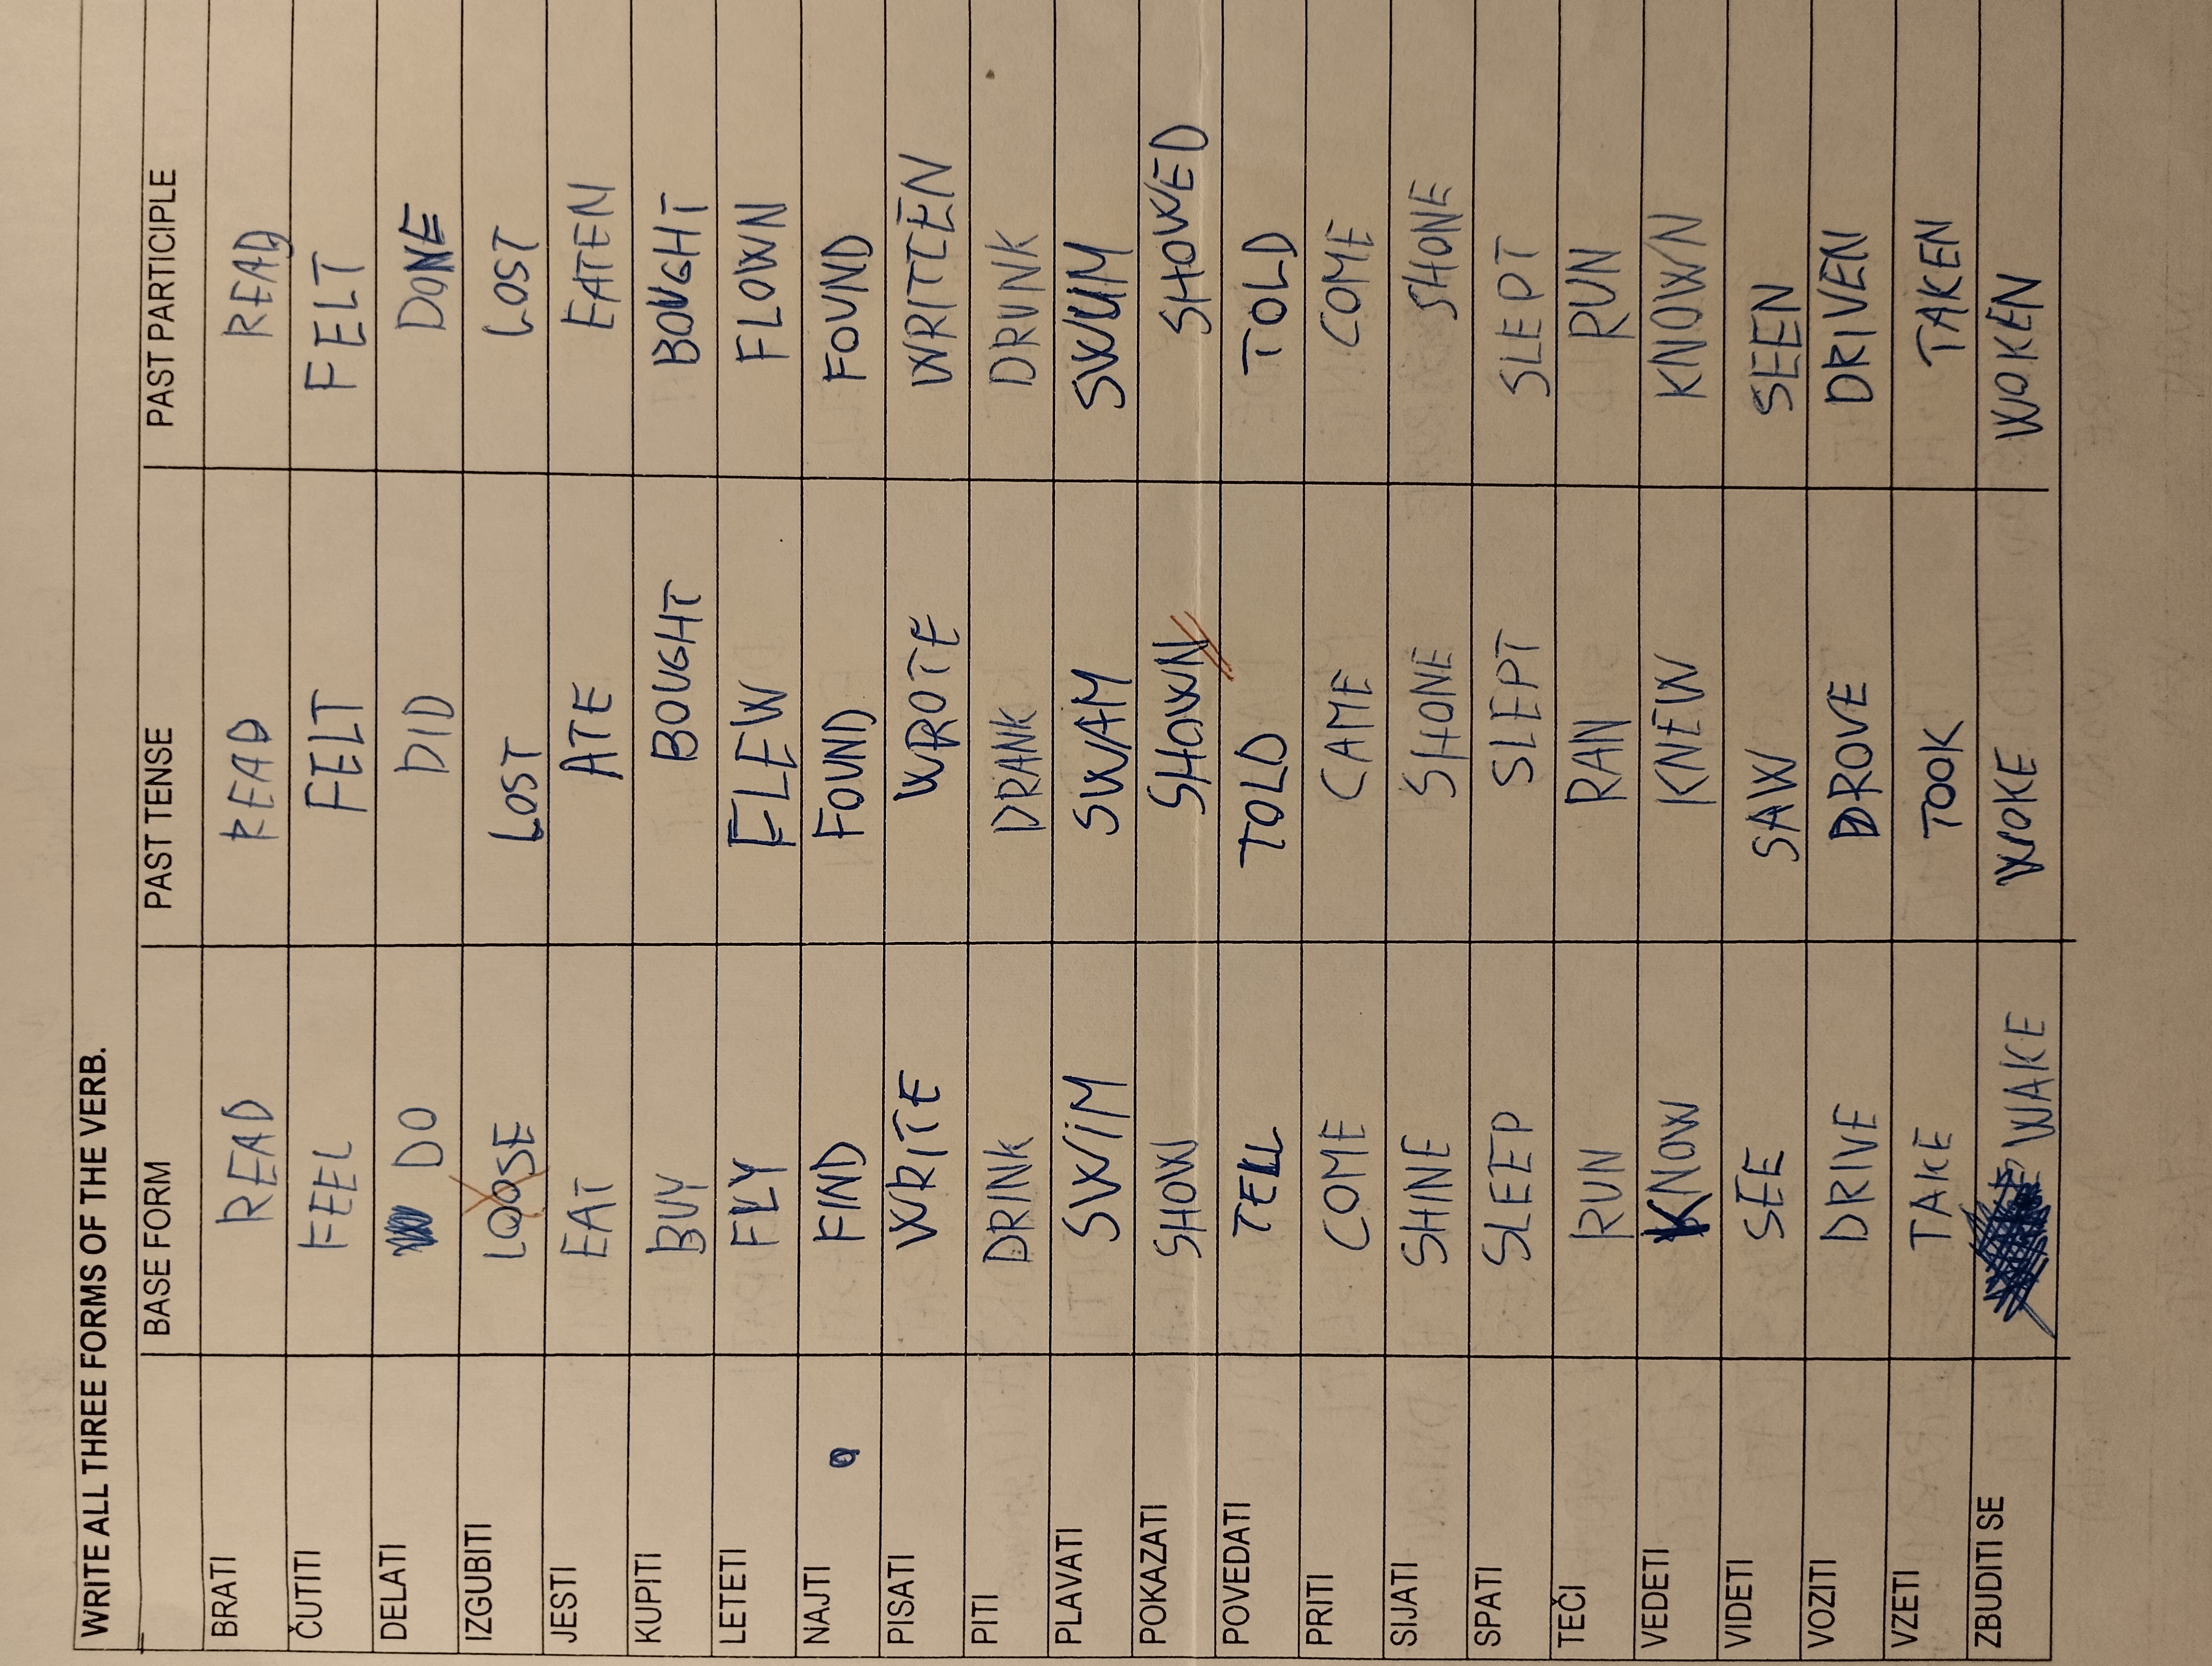 WRITE ALL THREE FORMS OF THE VERB.
BASE FORM PAST TENSE PAST PARTICIPLE
BRATI READ READ READ
ČUTITI FEEL FELT FELT
DELATI DO DID DONE
IZGUBITI LOOSE LOST LOST
JESTI EAT ATE EATEN
KUPITI BUY BOUGHT BOUGHT
LETETI FLY FLEW FLOWN
NAJTI FIND FOUND FOUND
PISATI WRITE WROTE WRITTEN
PITI DRINK DRANK DRUNK
PLAVATI SWIM SWAM SWUM
POKAZATI SHOW SHOWN SHOWED
POVEDATI TELL TOLD TOLD
PRITI COME CAME COME
SIJATI SHINE SHONE SHONE
SPATI SLEEP SLEPT SLEPT
TEČI RUN RAN RUN
VEDETI KNOW KNEW KNOWN
VIDETI SEE SAW SEEN
VOZITI DRIVE DROVE DRIVEN
VZETI TAKE TOOK TAKEN
ZBUDITI SE WAKE WOKE WOKEN